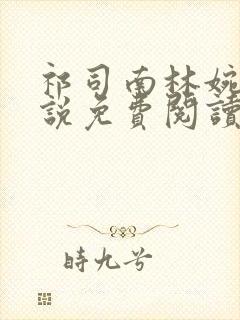 祁司南林婉
說免費閱讀
時九兮